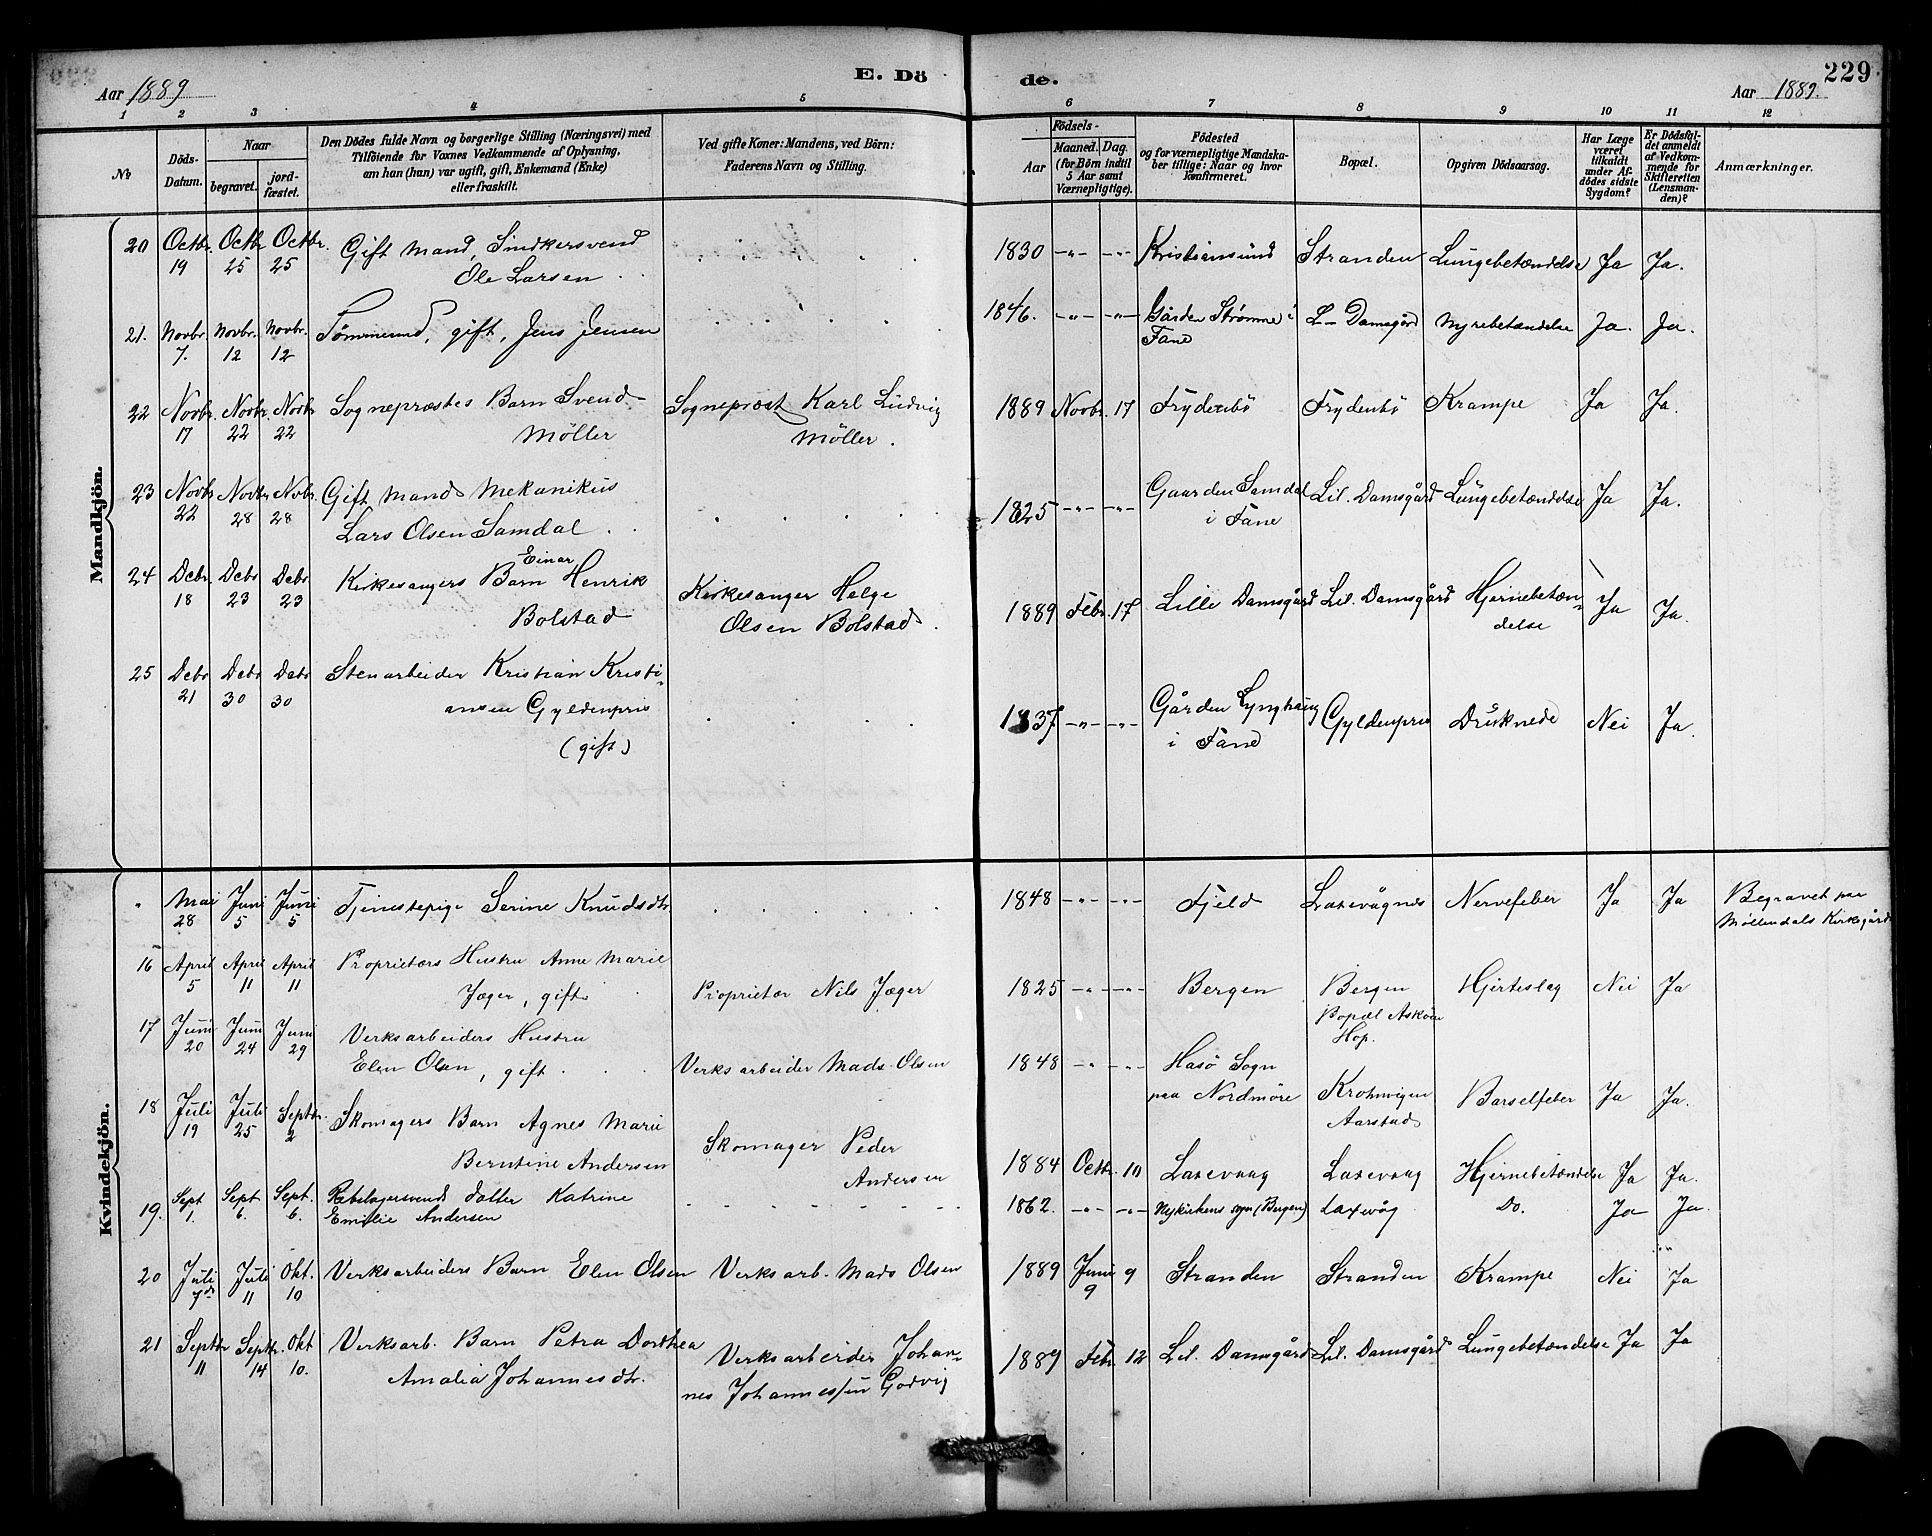 Aar 1889
E. Dö
de.
Aar 1889.
229
1 2 3 4 5 6 7 8 9 10 11 12
No
Döds-
Datum.
Naar
begravet.
jord-
fæstet.
Den Dödes fulde Navn og borgerlige Stilling (Næringsvei) med
Tilföiende for Voxnes Vedkommende af Oplysning,
om han (hun) var ugift, gift, Enkemand (Enke)
eller fraskilt.
Ved gifte Koner: Mandens, ved Börn:
Faderens Navn og Stilling.
Födsels-
Aar
Maaned. Dag.
(for Börn indtil
5 Aar samt
Værnepligtige).
Födested
og for værnepligtige Mandska-
ber tillige: Naar og hvor
Konfirmeret.
Bopæl.
Opgiven Dödsaarsag.
Har Læge
været
tilkaldt
under Af-
dödes sidste
Sygdom?
Er Dödsfal-
det anmeldt
af Vedkom-
mende for
Skifteretten
(Lensman-
den)?
Anmærkninger.
Mandkjön.
20 Octbr. 19 Octbr 25 Octbr. 25 Gift Mand, Sindkersvend
Ole Larsen
1830 -„- -„- Kristiansund Stranden Lungebetændelse Ja Ja.
21. Novbr. 7. Novbr. 12 Novbr. 12 Tømmermd, gift, Jens Jensen
1846. -„- -„- Gården Strømme i
Fane
L- Damsgård Nyrebetændelse Ja. Ja.
22 Novbr. 17 Novbr. 22 Novbr 22 Sognepræstes Barn Svend
Møller
Sognepræst Karl Ludvig
Møller.
1889 Novbr. 17 Frydenbö Frydenbö Krampe Ja Ja.
23 Novbr 22 Novbr 28 Novbr. 28 Gift Mand Mekanikus
Lars Olsen Samdal
1825 -„- -„- Gaarden Samdal
i Fane
Lil. Damsgård Lungebetændelse Ja Ja.
24 Debr. 18 Debr 23 Debr 23 Kirkesangers Barn Einar Henrik
Bolstad
Kirkesanger Helge
Olsen Bolstad.
1889 Febr. 17 Lille Damsgård Lil. Damsgård Hjernebetæn-
delse
Ja Ja.
25 Debr 21 Debr 30 Debr 30 Stenarbeider Kristian Kristi-
ansen Gyldenpris
(gift)
1837 -„- -„- Gården Lynghaug
i Fane
Gyldenpris Druknede Nei Ja.
Kvindekjön.
„ Mai 28 Juni 5 Juni 5 Tjenestepige Serine Knudsdtr
1848 -„- -„- Fjeld Laxevågnes Nervefeber Ja Ja Begravet paa
Möllendals Kirkegård
16 April 5 April 11 April 11 Proprietærs Hustru Anne Marie
Jæger, gift
Proprietær Nils Jæger
1825 -„- -„- Bergen Bergen
Bopæl Askøen
Hop.
Hjerteslag Nei Ja
17 Juni 20 Juni 24 Juni 29 Verksarbeiders Hustru
Elen Olsen, gift
Verksarbeider Mads Olsen
1848 -„- -„- Hasö Sogn
paa Nordmöre
Krohnvigen
Aarstad
Barselfeber Ja Ja.
18 Juli 19 Juli 25 Septbr. 2 Skomagers Barn Agnes Marie
Berntine Andersen
Skomager Peder
Andersen
1884 Octbr. 10 Laxevaag Laxevaag Hjernebetændelse Ja Ja.
19. Sept 1. Sept. 6. Sept. 6. Rebslagersvends datter Katrine
Emilie Andersen
1862. -„- -„- Nykirkens sogn (Bergen) Laxevåg Do. Ja Ja.
20 Juli 7de Juli 11 Okt. 10 Verksarbeiders Barn Elen Olsen Verksarb. Mads Olsen
1889 Juni 9 9 Stranden Stranden Krampe Nei Ja
21 Septbr 11 Septbr. 14 Okt 10. Verksarb. Barn Petra Dorthea
Amalia Johannesdtr.
Verksarbeider Johan-
nes Johannessen Godvig
1889 Febr. 12 Lil. Damsgård Lil. Damsgård Lungebetændelse Ja Ja